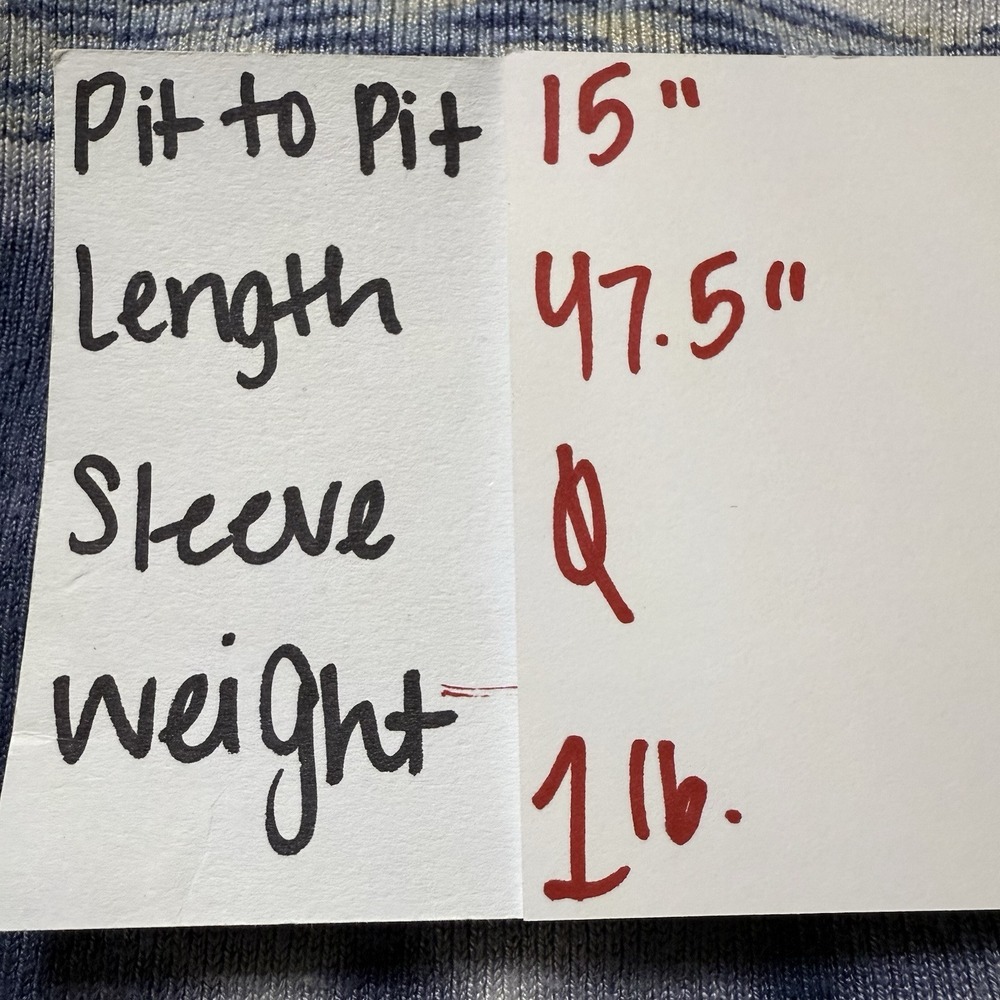 Pit to Pit 15"
Length 47.5"
Sleeve Ø
Weight 1 lb.